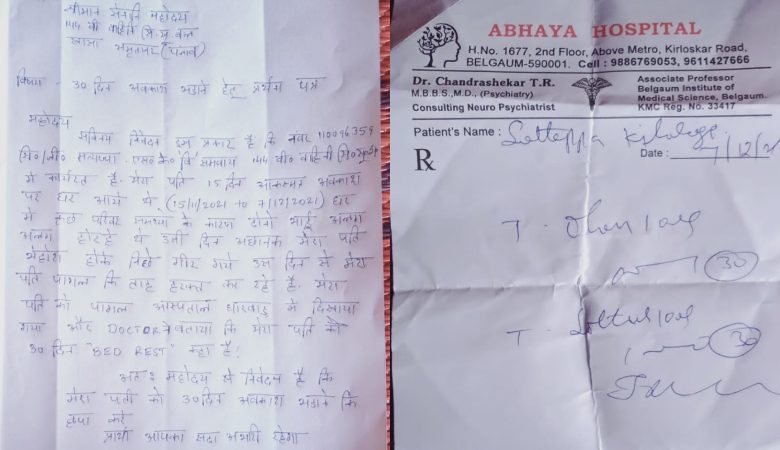 श्रीमान सेनानी महोदय
144 वी वाहिनी सि.सु.बल
खासा अमृतसर (पंजाब)
विषय - 30 दिन अवकाश बढाने हेतु प्रार्थना पत्र
महोदय
सविनय निवेदन इस प्रकार है कि नंबर 110096359
एस० के० वि समवाय 144 वी० वाहिनी
में कार्यरत है. मेरा पति 15 दिन आकस्मिक अवकाश
पर घर आये थे (15/11/2021 to 7/12/2021) घर
मे कुछ परिवार समस्या के कारण दोनो भाई अलग
अलग होरहे थे उसी दिन अचानक मेरा पति
बेहोश होके निचे गीर गये उस दिन से मेरा
पति पागल कि तरह हरकत कर रहे है. मेरा
पति को पागल अस्पताल धारवाड़ मे दिखाया
गया और DOCTOR ने बताया कि मेरा पति को
30 दिन "BED REST" कहा है!
अतः महोदय से निवेदन है कि
मेरा पती को 30 दिन अवकाश बढाने कि
कृपा करे
प्रार्थी आपका सदा अभारी रहेगा
ABHAYA HOSPITAL
H.No. 1677, 2nd Floor, Above Metro, Kirloskar Road,
BELGAUM-590001. Cell : 9886769053, 9611427666
Dr. Chandrashekar T.R.
M.B.B.S.,M.D., (Psychiatry)
Consulting Neuro Psychiatrist
Associate Professor
Belgaum Institute of
Medical Science, Belgaum.
KMC Reg. No. 33417
Patient's Name : Satteppa
Date : 7/12/21
Rx
T.
30
T.
30